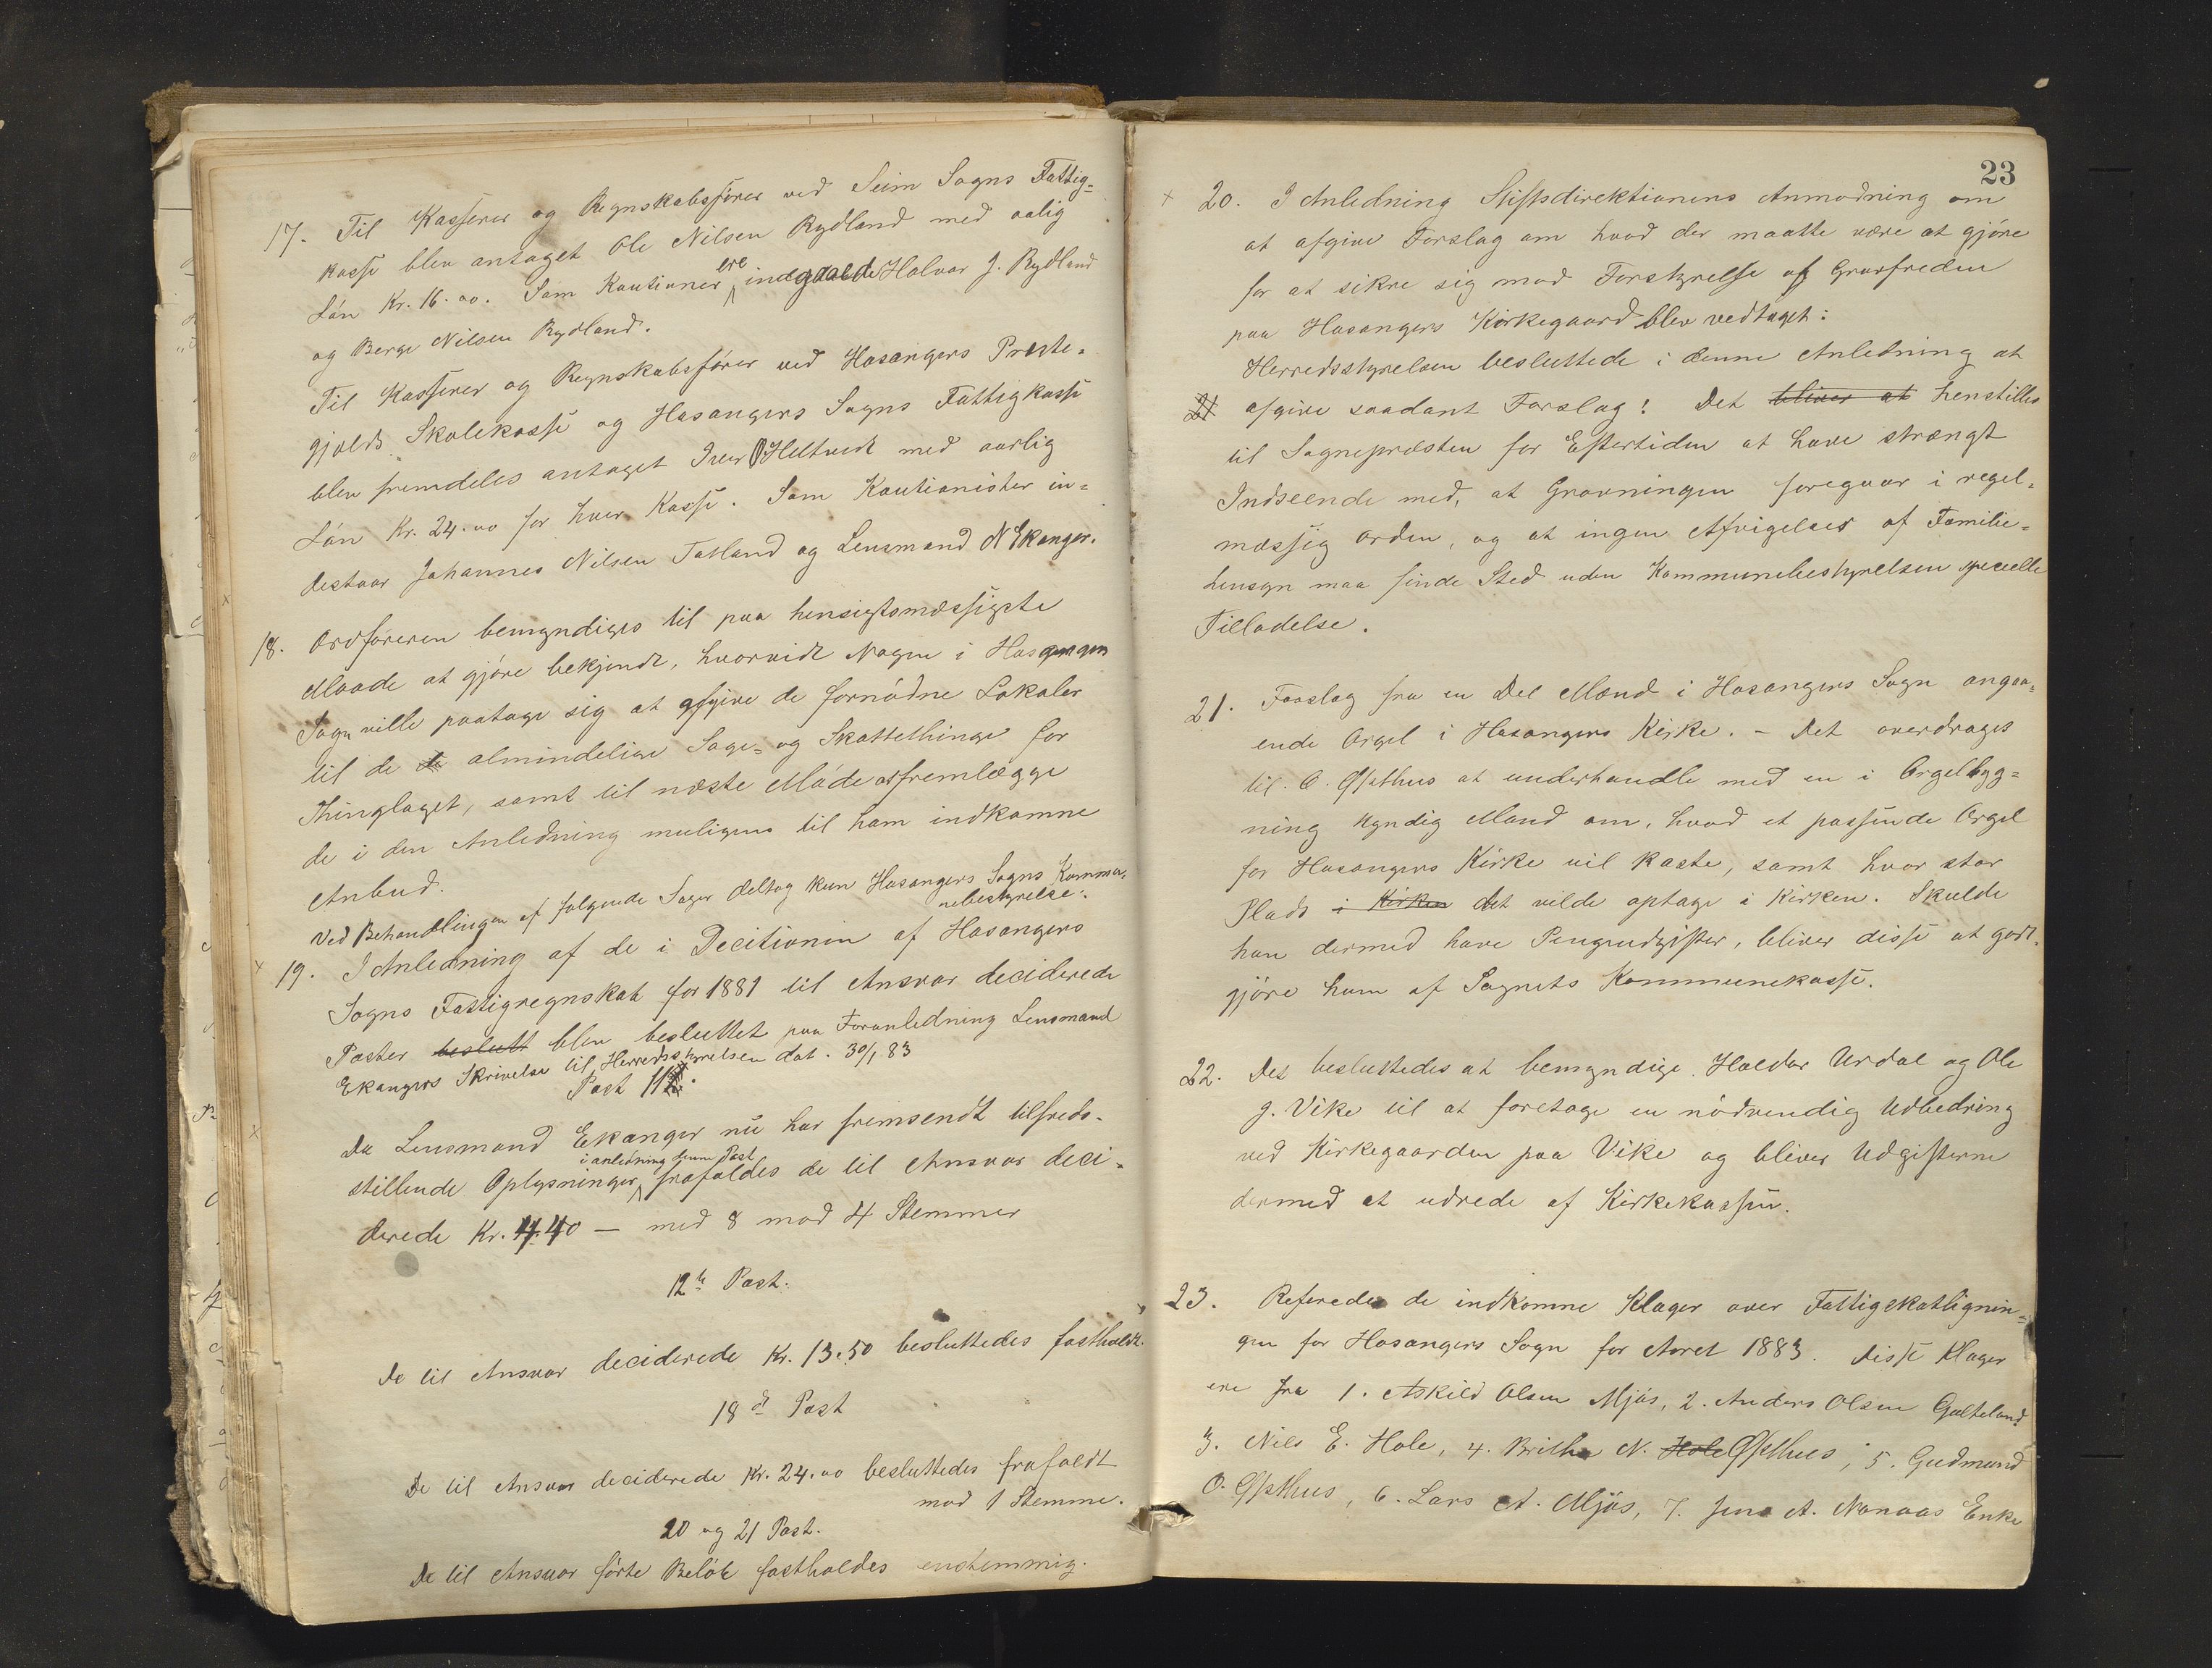 17. Til Kasserer og Regnskabsfører ved Seim Sogns Fattig=
kasse blev antaget Ole Nilsen Rydland med aalig
Løn Kr. 16.00. Som Kautioner ere indgaaede Halvor J. Rydland
og Berge Nilsen Rydland.
Til Kasserer og Regnskabsfører ved Hosangers Præste=
gjælds Skolekasse og Hosangers Sogns Fattigkasse
blev fremdeles antaget Iver O Heltvedt med aarlig
Løn Kr. 24.00 for hver Kasse. Som Kautionister in=
destaar Johannes Nilsen Tatland og Lensmand N Ekanger.
18. Ordføreren bemyndiges til paa hensigtsmæssigste
Maade at gjøre bekjendt, hvorvidt Nogen i Hosangers
Sogn ville paatage sig at afgive de fornødne Lokaler
til de de almindelige Sage= og Skattethinge for
Thinglaget, samt til næste Møde at fremlægge
de i den Anledning muligens til ham indkomne
Anbud.
Ved Behandlingen af følgende Sager deltog kun Hosangers Sogns Kommu=
nebestyrelse:
19. I Anledning af de i Decitionen af Hosangers
Sogns Fattigregnskab for 1881 til Ansvar deciderede
Poster beslutt blev besluttet paa Foranledning Lensmand
Ekangers Skrivelse til Herredsstyrelsen dat. 30/1 83
Post 11.
Da Lensmand Ekanger nu har fremsendt tilfreds=
i anledning denne Post
stillende Oplysninger, frafaldes de til Ansvar deci=
derede Kr. 4.40 — med 8 mod 4 Stemmer
12te Post.
De til Ansvar deciderede Kr. 13.50 besluttedes fastholdt.
18de Post
De til Ansvar deciderede Kr. 24.00 besluttedes frafaldt
mod 1 Stemme.
20 og 21 Post.
De til Ansvar førte Beløb fastholdes enstemmig.
23
20. I Anledning Stiftsdirektionens Anmodning om
at afgive Forslag om hvad der maatte være at gjøre
for at sikre sig mod Forstyrelse af Gravfreden
paa Hosangers Kirkegaard blev vedtaget:
Herredsstyrelsen besluttede i denne Anledning at
21 afgive saadant Forslag: Det bliver at henstilles
til Sognepræsten for Eftertiden at have strængt
Indseende med, at Gravningen foregaar i regel=
mæssig Orden, og at ingen Afvigelser af Familie=
hensyn maa finde Sted uden Kommunebestyrelsen specielle
Tilladelse.
21. Forslag fra en Del Mænd i Hosangers Sogn angaa=
ende Orgel i Hosangers Kirke. – Det overdrages
til O. Gjsthus at underhandle med en i Orgelbyg=
ning kyndig Mand om, hvad et passende Orgel
for Hosangers Kirke vil koste, samt hvor stor
Plads i Kirken det vilde optage i Kirken. Skulde
han dermed have Pengeudgifter, bliver disse at godt=
gjøre ham af Sognets Kommunekasse.
22. Det besluttedes at bemyndige Haldor Urdal og Ole
J. Vike til at foretage en nødvendig Udbedring
ved Kirkegaarden paa Vike og bliver Udgifterne
dermed at udrede af Kirkekassen.
23. Refereredes de indkomne Klager over Fattigskatlignin=
gen for Hosangers Sogn for Aaret 1883. Disse Klager
ere fra 1. Askild Olsen Mjøs, 2. Anders Olsen Galteland
3. Nils E. Hole, 4. Britha N. Hole Gjsthus, 5. Gudmund
O. Gjsthus, 6. Lars A. Mjøs, 7. Jens A. Nonaas Enke